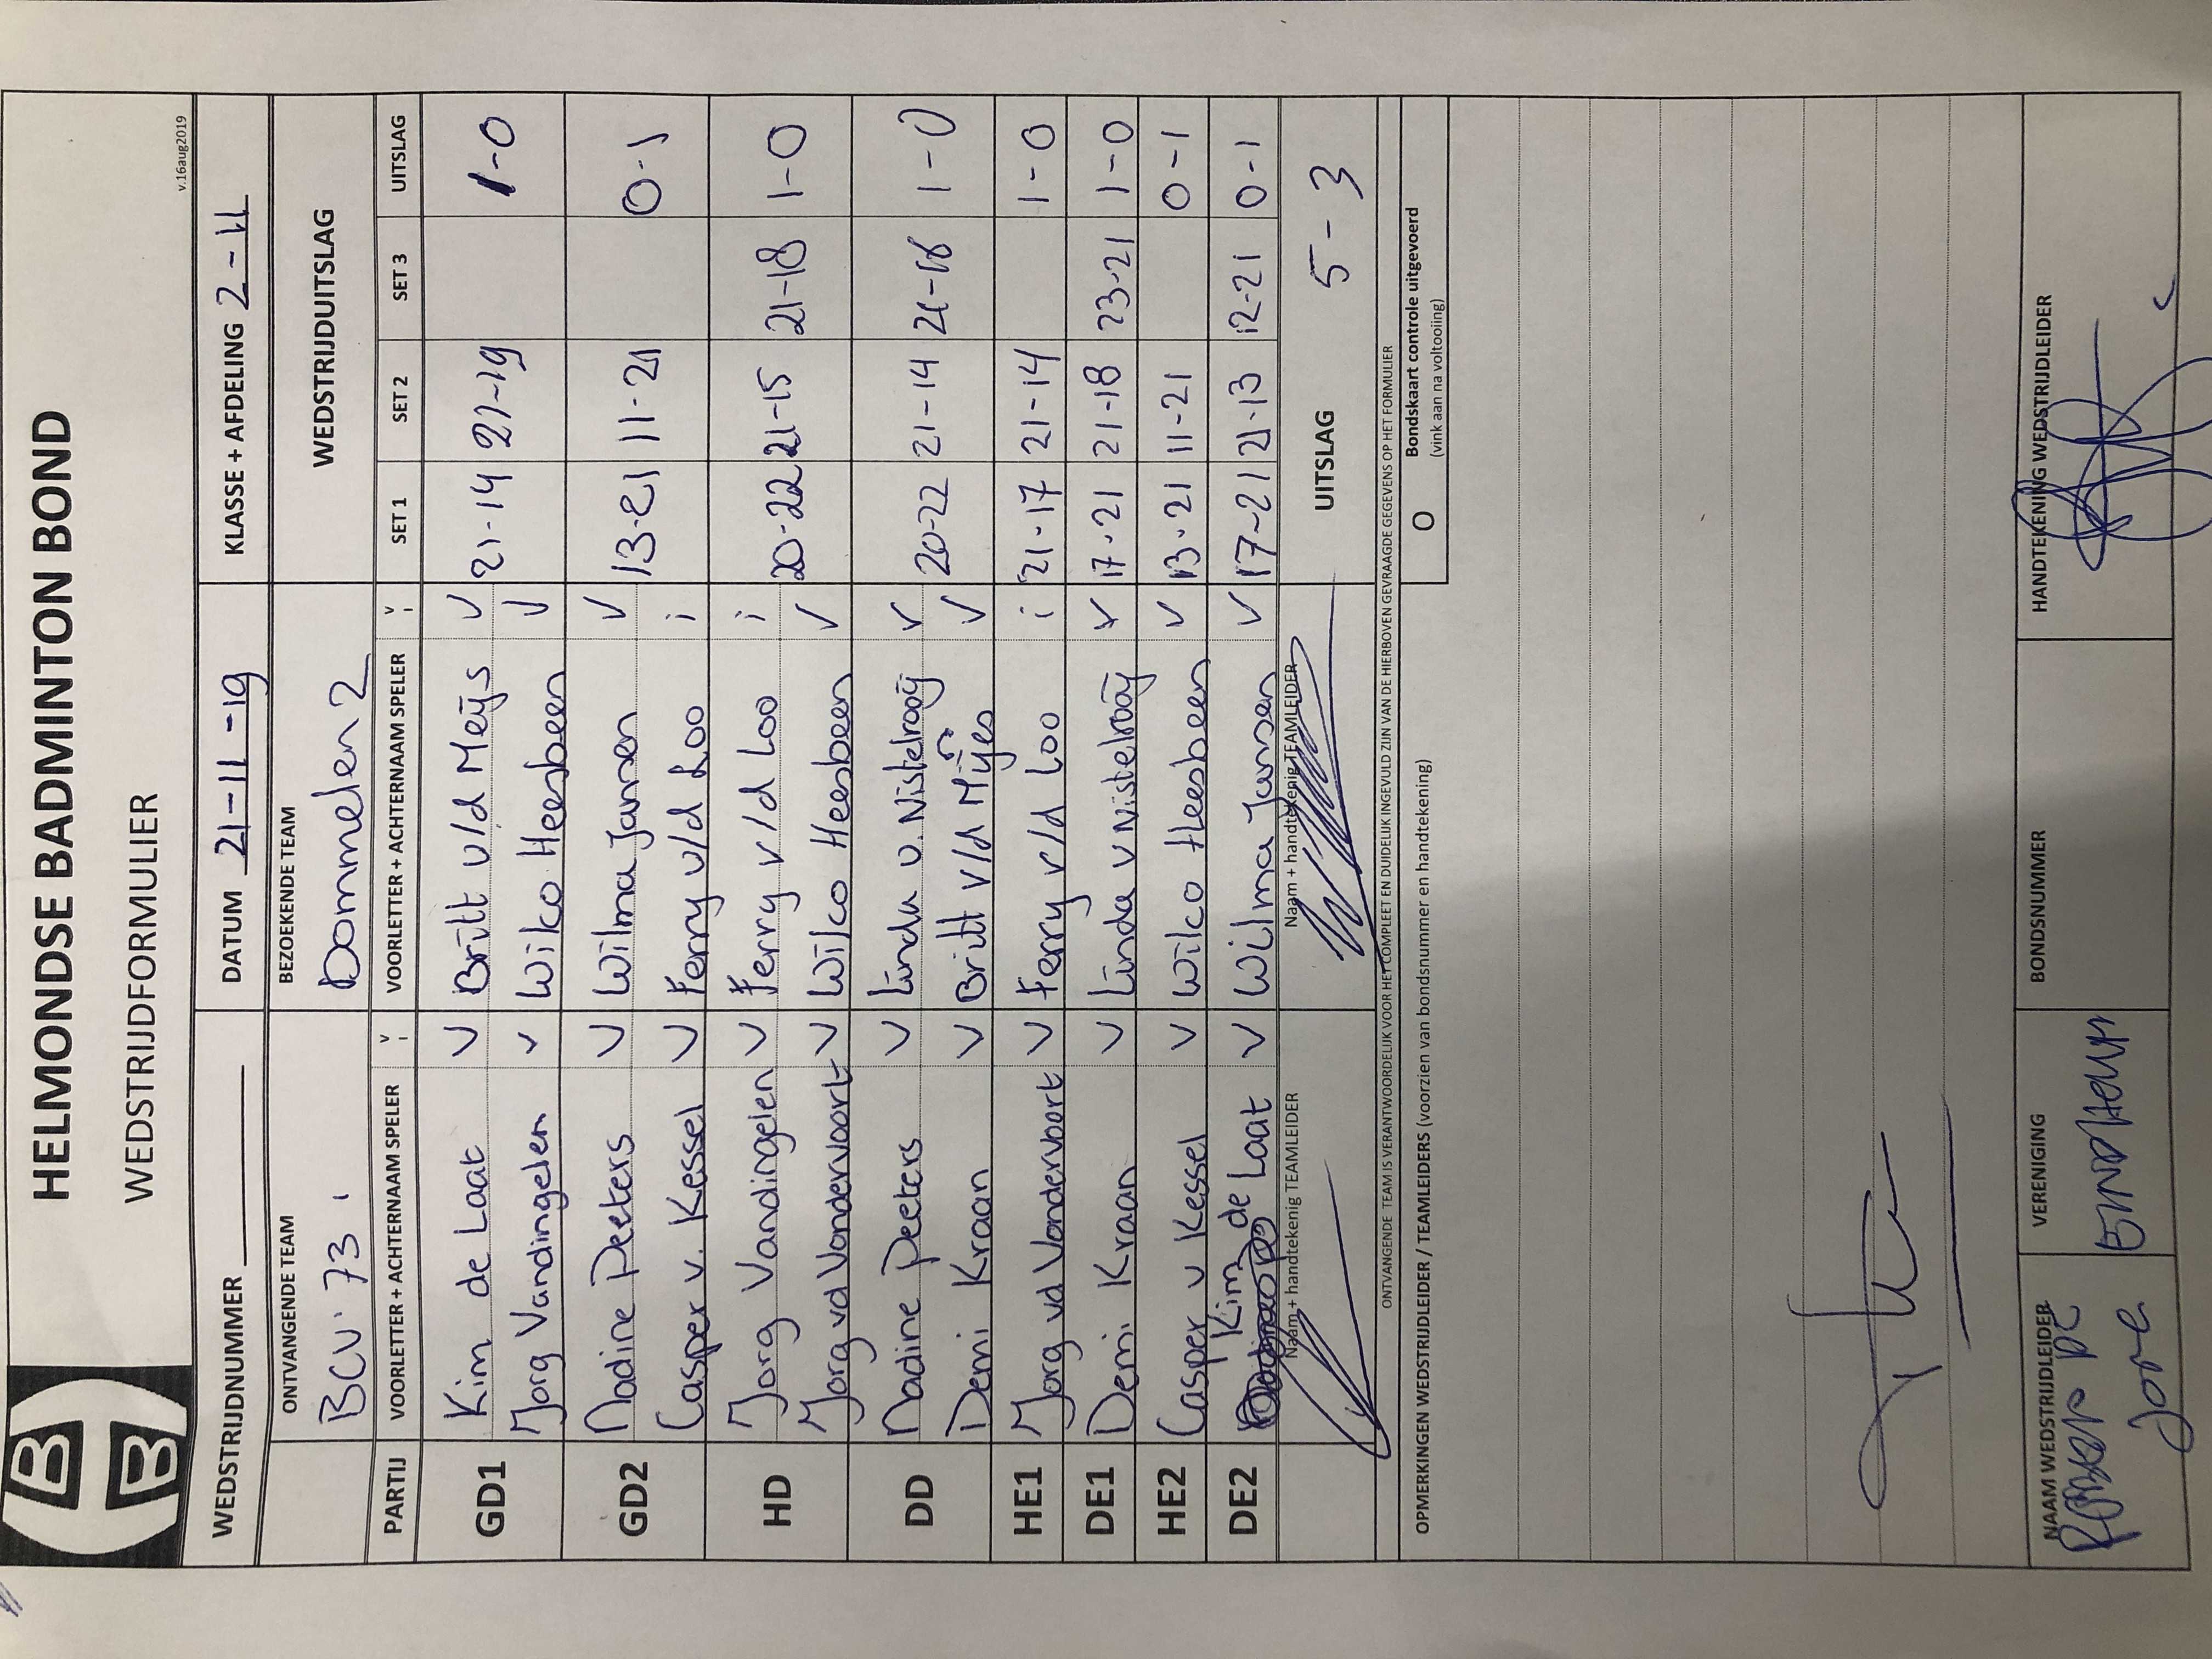 HELMONDSE BADMINTON BOND
WEDSTRIJDFORMULIER
v.16aug2019
WEDSTRIJDNUMMER DATUM 21-11-19 KLASSE + AFDELING 2-11
ONTVANGENDE TEAM BEZOEKENDE TEAM WEDSTRIJDUITSLAG
BCV'73 1 Dommelen 2
PARTIJ VOORLETTER + ACHTERNAAM SPELER v i VOORLETTER + ACHTERNAAM SPELER v i SET 1 SET 2 SET 3 UITSLAG
GD1 Kim de Laat v Britt v/d Meijs v 21-14 21-19 1-0
Jorg Vandingelen v Wilco Heesbeen v
GD2 Nadine Peeters v Wilma Jansen v 13-21 11-21 0-1
Casper v. Kessel v Ferry v/d Loo i
HD Jorg Vandingelen v Ferry v/d Loo i 20-22 21-15 21-18 1-0
Jorg vd Vondervoort v Wilco Heesbeen v
DD Nadine Peeters v Linda v. Nistelrooij v 20-22 21-14 21-16 1-0
Demi Kraan v Britt v/d Mijes v
HE1 Jorg vd Vondervoort v Ferry v/d Loo i 21-17 21-14 1-0
DE1 Demi Kraan v Linda v Nistelrooij v 17-21 21-18 23-21 1-0
HE2 Casper v Kessel v Wilco Heesbeen v 13-21 11-21 0-1
DE2 Kim de Laat v Wilma Jansen v 17-21 21-13 12-21 0-1
Naam + handtekenig TEAMLEIDER Naam + handtekenig TEAMLEIDER UITSLAG 5-3
ONTVANGENDE TEAM IS VERANTWOORDELIJK VOOR HET COMPLEET EN DUIDELIJK INGEVULD ZIJN VAN DE HIERBOVEN GEVRAAGDE GEGEVENS OP HET FORMULIER
OPMERKINGEN WEDSTRIJDLEIDER / TEAMLEIDERS (voorzien van bondsnummer en handtekening) O Bondskaart controle uitgevoerd
(vink aan na voltooiing)
NAAM WEDSTRIJDLEIDER VERENIGING BONDSNUMMER HANDTEKENING WEDSTRIJDLEIDER